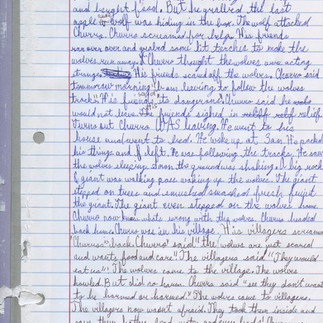 and bought food. But he grabbed the last
apple a wolf was hiding in the box. The wolf attacked
Churro. Churro screamed for help. His friends
ran over and grabed some hit torches to make the
wolves run away. Churro thought the wolves were acting
strange. His friends scared off the wolves. Churro said
tomorrow morning I am leaving to follow the wolves
track. His friends "to dangerous. Churro said he
would not leave. The friends sighed in relief
Churro WAS leaving. He went to his
house and went to bed. He woke up at 3am. He packed
his things and left. He was following the tracks. He saw
the wolves sleeping. Then the ground shaking. A big rock
giant was walking past waking up the wolves. The giant
stepped on trees and smushed
the giant. The giant even stepped on the wolves home
Churro now know whats wrong with the wolves. Churro headed
back home. Churro was in his village. His villagers screamed
"Churros" back. Churro said "the wolves are just scared
and want food and care". The villagers said "They would
eat us". The wolves came to the village. The wolves
howled. But did no harm. Churro said "see they don't want
to be harmed or harmed." The wolves came to villagers.
The villagers now wasn't afraid. They took them inside and